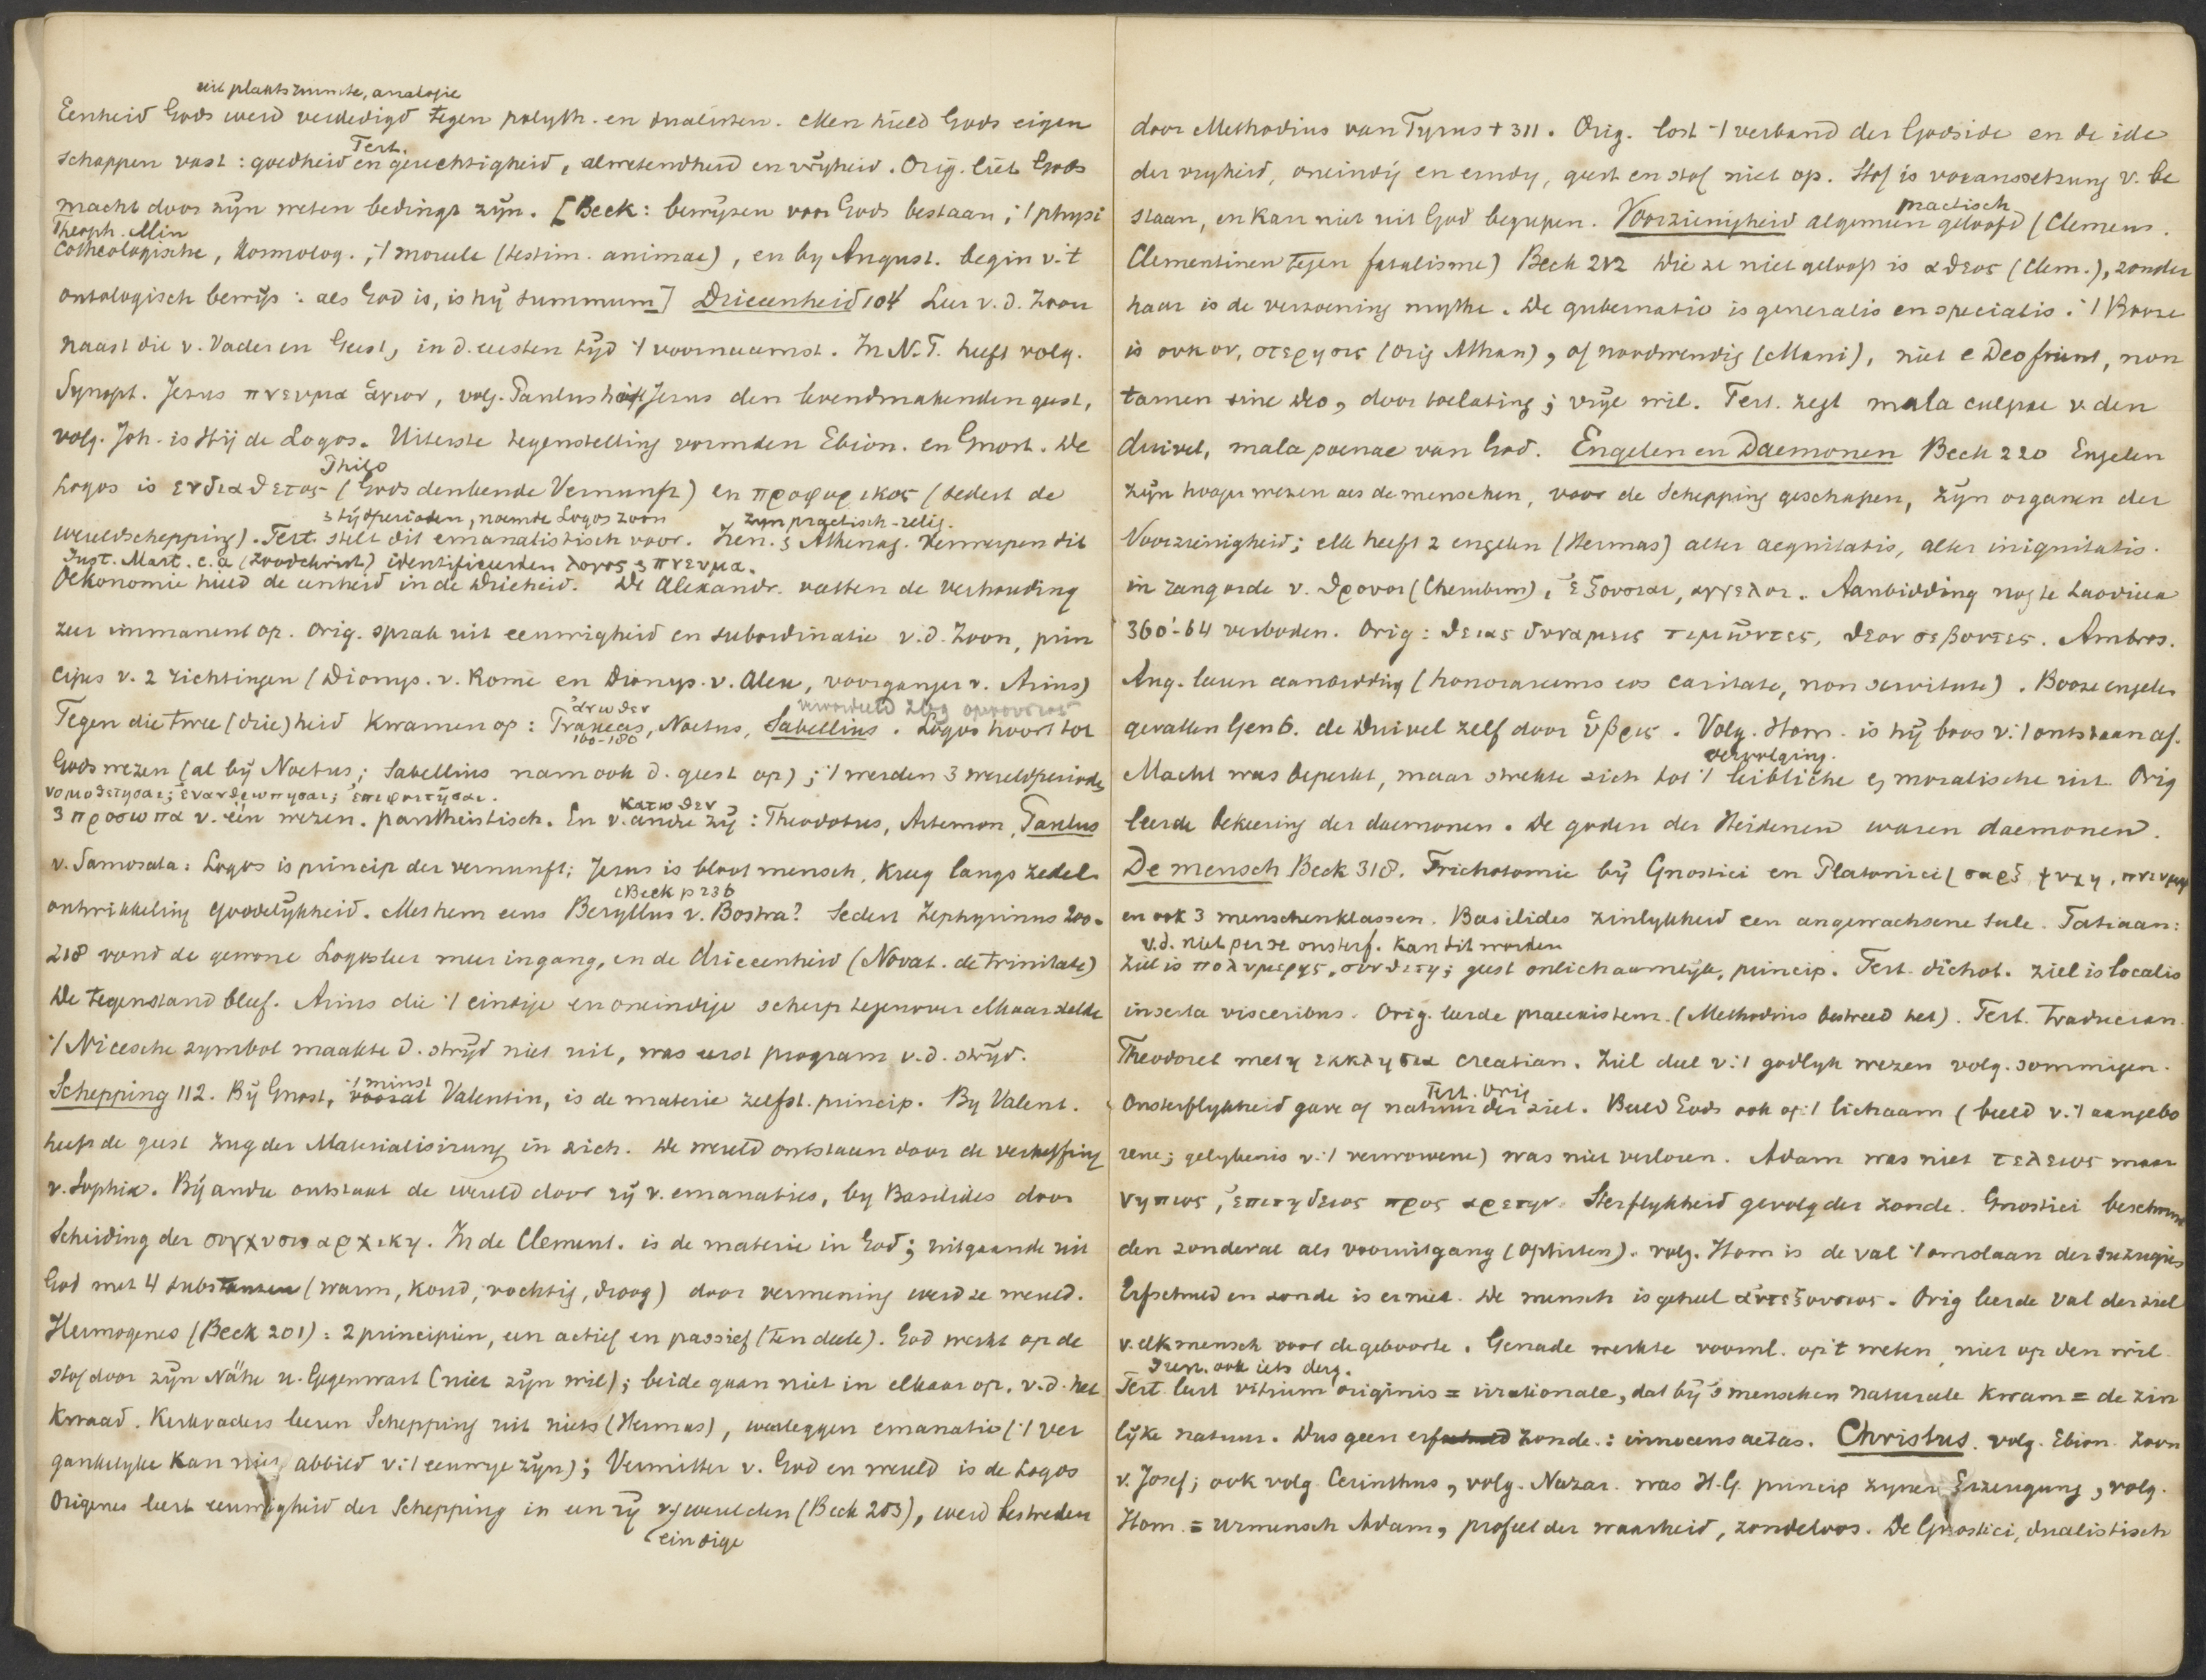 uit plaatsruimte, analogie
Eenheid Gods werd verdedigd tegen polyth. en dualisten. Men hield Gods eigen
Tert.
schappen vast: goedheid en gerechtigheid, alwetendheid en vrijheid. Orig. liet Gods
macht door zijn weten bedingt zijn. [Beck: bewijzen voor Gods bestaan; 't physi
Theoph. Min
cotheologische, kosmolog., 't moreele (testim. animae), en by August. begin v. 't
ontologisch bewijs: als God is, is hij summum] Drieenheid 104 Leer v.d. Zoon
naast die v. Vader en Geest, in d. eersten tijd 't voornaamst. In N.T. heeft volg.
Synopt. Jezus πνευμα ἁγιον, volg. Paulus heeft Jezus den levendmakenden geest,
volg. Joh. is Hij de Logos. Uiterste tegenstelling vormden Ebion. en Gnost. De
Philo
Logos is ενδιαθετος (Gods denkende Vernunft) en προφορικος (sedert de
3 tijdperioden, noemde Logos zoon zijn practisch-relig.
wereldschepping). Tert. stelt dit emanatistisch voor. Iren. & Athenag. verwerpen dit
Just. Mart. e.a. identificeerden λογος & πνευμα.
Oekonomie hield de eenheid in de Drieheid. De Alexandr. vatten de verhouding
zeer immanent op. Orig. sprak uit eeuwigheid en subordinatie v.d. Zoon, prin
cipes v. 2 richtingen (Dionys. v. Rome en Dionys. v. Alex, voorganger v. Arius)
ἀνωθεν veroordeeld 269 ομοουσιος
Tegen die twee (drie)heid kwamen op: Praxeas, Noetus, Sabellius. Logos hoort tot
160-180
Gods wezen (al bij Noetus; Sabellius nam ook d. geest op); 't werden 3 wereldperiodes
νομοθετησαι; ἐνανθρωπησαι; ἐπιφοιτῆσαι.
κατωθεν
3 προσωπα v. één wezen. pantheistisch. En v. andre zij: Theodotus, Artemon, Paulus
v. Samosata: Logos is princip der vernunft; Jezus is bloot mensch, kreeg langs zedel.
(Beck p 236
ontwikkeling goddelijkheid. Met hem eens Beryllus v. Bostra? Sedert Zephyrinus 200-
218 vond de gewone Logosleer meer ingang, en de drieeenheid (Novat. de trinitate)
De tegenstand bleef. Arius die 't eindige en oneindige scherp tegenover elkaar stelde
't Niceesche symbol maakte d. strijd niet uit, was eerst program v.d. strijd.
't minst
Schepping 112. Bij Gnost, vooral Valentin, is de materie zelfst. princip. By Valent.
heeft de geest Zug der Materialisirung in zich. De wereld ontstaan door de verheffing
v. Sophia. Bij andre ontstaat de wereld door rij v. emanaties, by Basilides door
Scheiding der συγχυσις αρχικη. In de Clement. is de materie in God; uitgaande uit
God met 4 substanzen (warm, koud, vochtig, droog) door vermening werd ze wereld.
Hermogenes (Beck 201): 2 principien, een actief en passief (ten deele). God werkt op de
stof door zijn Nähe u. Gegenwart (niet zijn wil); beide gaan niet in elkaar op, v.d. het
kwaad. Kerkvaders leeren Schepping uit niets (Hermas), weerleggen emanatio ('t ver
gankelyke kan niet abbild v. 't eeuwige zijn); Vermittler v. God en wereld is de Logos
Origenes leert eeuwigheid der Schepping in een rij v. werelden (Beck 203), werd bestreden
eindige
door Methodius van Tyrus + 311. Orig. lost 't verband der Godsidee en de idee
der vryheid, oneindig en eindig, geest en stof niet op. Stof is voraussetzung v. be
practisch
staan, en kan niet uit God begrepen. Voorzienigheid algemeen geloofd (Clemens.
Clementinen tegen fatalisme) Beck 212 Wie ze niet gelooft is αθεος (Clem.), zonder
haar is de verzoening mythe. De gubernatio is generalis en specialis. 't Booze
is ουκ ον, στερησις (Orig Athan), of nordwendig (Mani), niet e Deo fiunt, non
tamen sine deo, door toelating; vrije wil. Tert. zegt mala culpae v. den
duivel, mala poenae van God. Engelen en Daemonen Beck 220 Engelen
zijn hooger wezen als de menschen, voor de Schepping geschapen, zijn organen der
Voorzienigheid; elk heeft 2 engelen (Hermas) alter aequitatis, alter iniquitatis.
in rangorde v. θρονοι (Cherubim), ἐξουσιαι, αγγελοι. Aanbidding nog te Laodicea
360-64 verboden. Orig: θειας δυναμεις τιμῶντες, θεον σεβοντες. Ambros.
Aug. leeren aanbidding (honoraremus eos caritate, non servitute). Booze engelen
gevallen Gen 6. de Duivel zelf door ὕβρις. Volg. Hom. is hij boos v. 't ontstaan af.
vervolging.
Macht was beperkt, maar strekte zich tot 't leibliche & moralische uit. Orig
leerde bekeering der daemonen. De goden der Heidenen waren daemonen.
De mensch Beck 318. Trichotomie bij Gnostici en Platonici (σαρξ ψυχη, πνευμα)
en ook 3 menschenklassen. Basilides zinlykheid een angewachsene Seele. Tatiaan:
v.d. niet per se onsterf. kan dit worden
Ziel is πολυμερης, συνθετη; geest onlichaamlijk, princip. Tert. dichot. ziel is localis
inserta visceribus. Orig. leerde praeexistenz. (Methodius bestreed het). Tert. traducian.
Theodoret met η εκκλησια creatian. Ziel deel v. 't godlyk wezen volg. sommigen.
Tert. Orig
Onsterflykheid gave of natuur der ziel. Beeld Gods ook op 't lichaam (beeld v. 't aangebo
rene; gelykenis v. 't verworvene) was niet verloren. Adam was niet τελειος maar
νηπιος, ἐπιτηδειος προς αρετην. Sterflykheid gevolg der zonde. Gnostici beschouw
den zondeval als vooruitgang (Ophiten). volg. Hom is de val 't omslaan der suzugies
Erfschuld en zonde is er niet. De mensch is geheel ἀυτεξουσιος. Orig leerde val der ziel
v. elk mensch voor de geboorte. Genade werkte vooral. op 't weten, niet op den wil.
Iren. ook iets derg.
Tert. leert vitium originis = irrationale, dat bij 's menschen naturale kwam = de zin
lijke natuur. Dus geen erfzonde: innocens aetas. Christus. volg. Ebion. Zoon
v. Josef; ook volg. Cerinthus, volg. Nazar. was H.G. princip zyner Erzeugung, volg.
Hom. = urmensch Adam, profeet der waarheid, zondeloos. De Gnostici, dualistisch